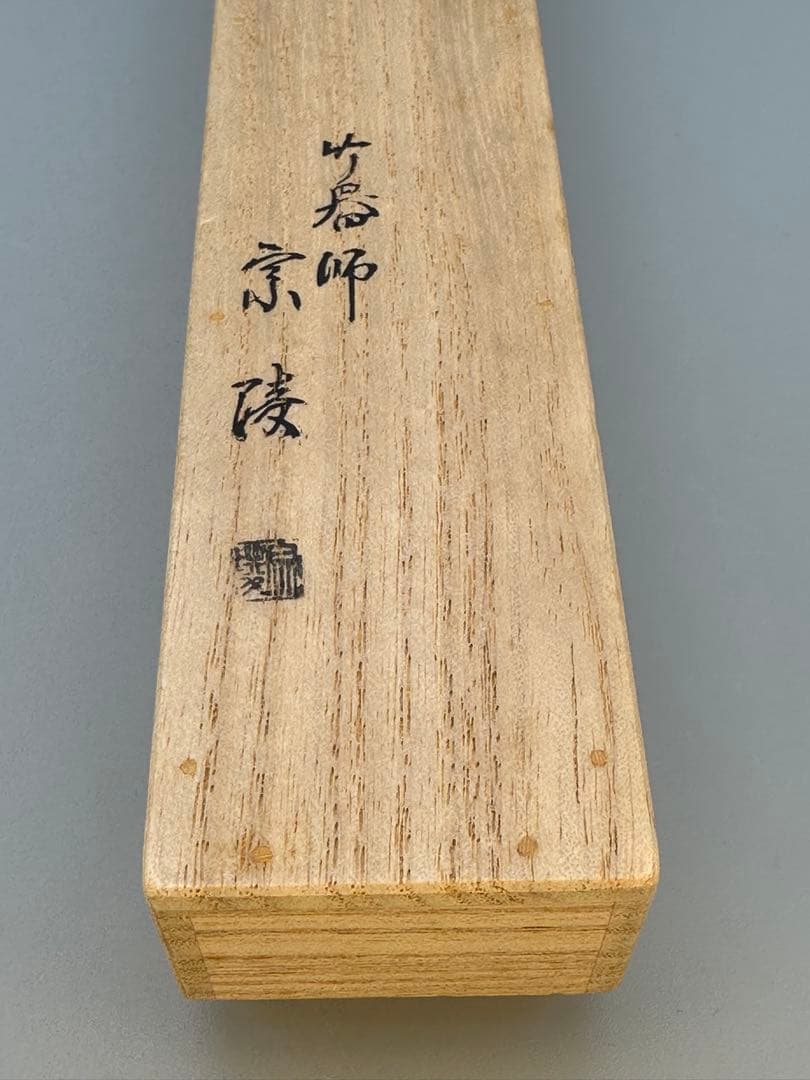 竹器師
宗陵